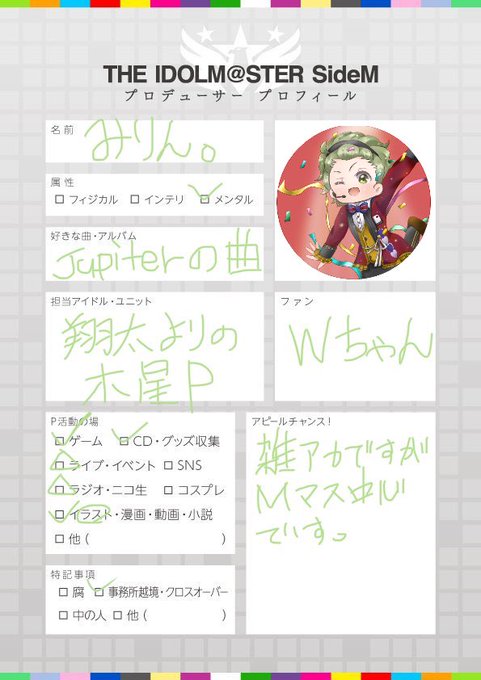 THE IDOLM@STER SideM
プロデューサー プロフィール
名前
みりん。
属性
フィジカル インテリ メンタル
好きな曲・アルバム
Jupiterの曲
担当アイドル・ユニット
翔太よりの
木星P
ファン
Wちゃん
P活動の場
ゲーム CD・グッズ収集
ライブ・イベント SNS
ラジオ・ニコ生 コスプレ
イラスト・漫画・動画・小説
他( )
アピールチャンス!
雑アカですが
Mマス中心
です。
特記事項
腐 事務所越境・クロスオーバー
中の人 他( )